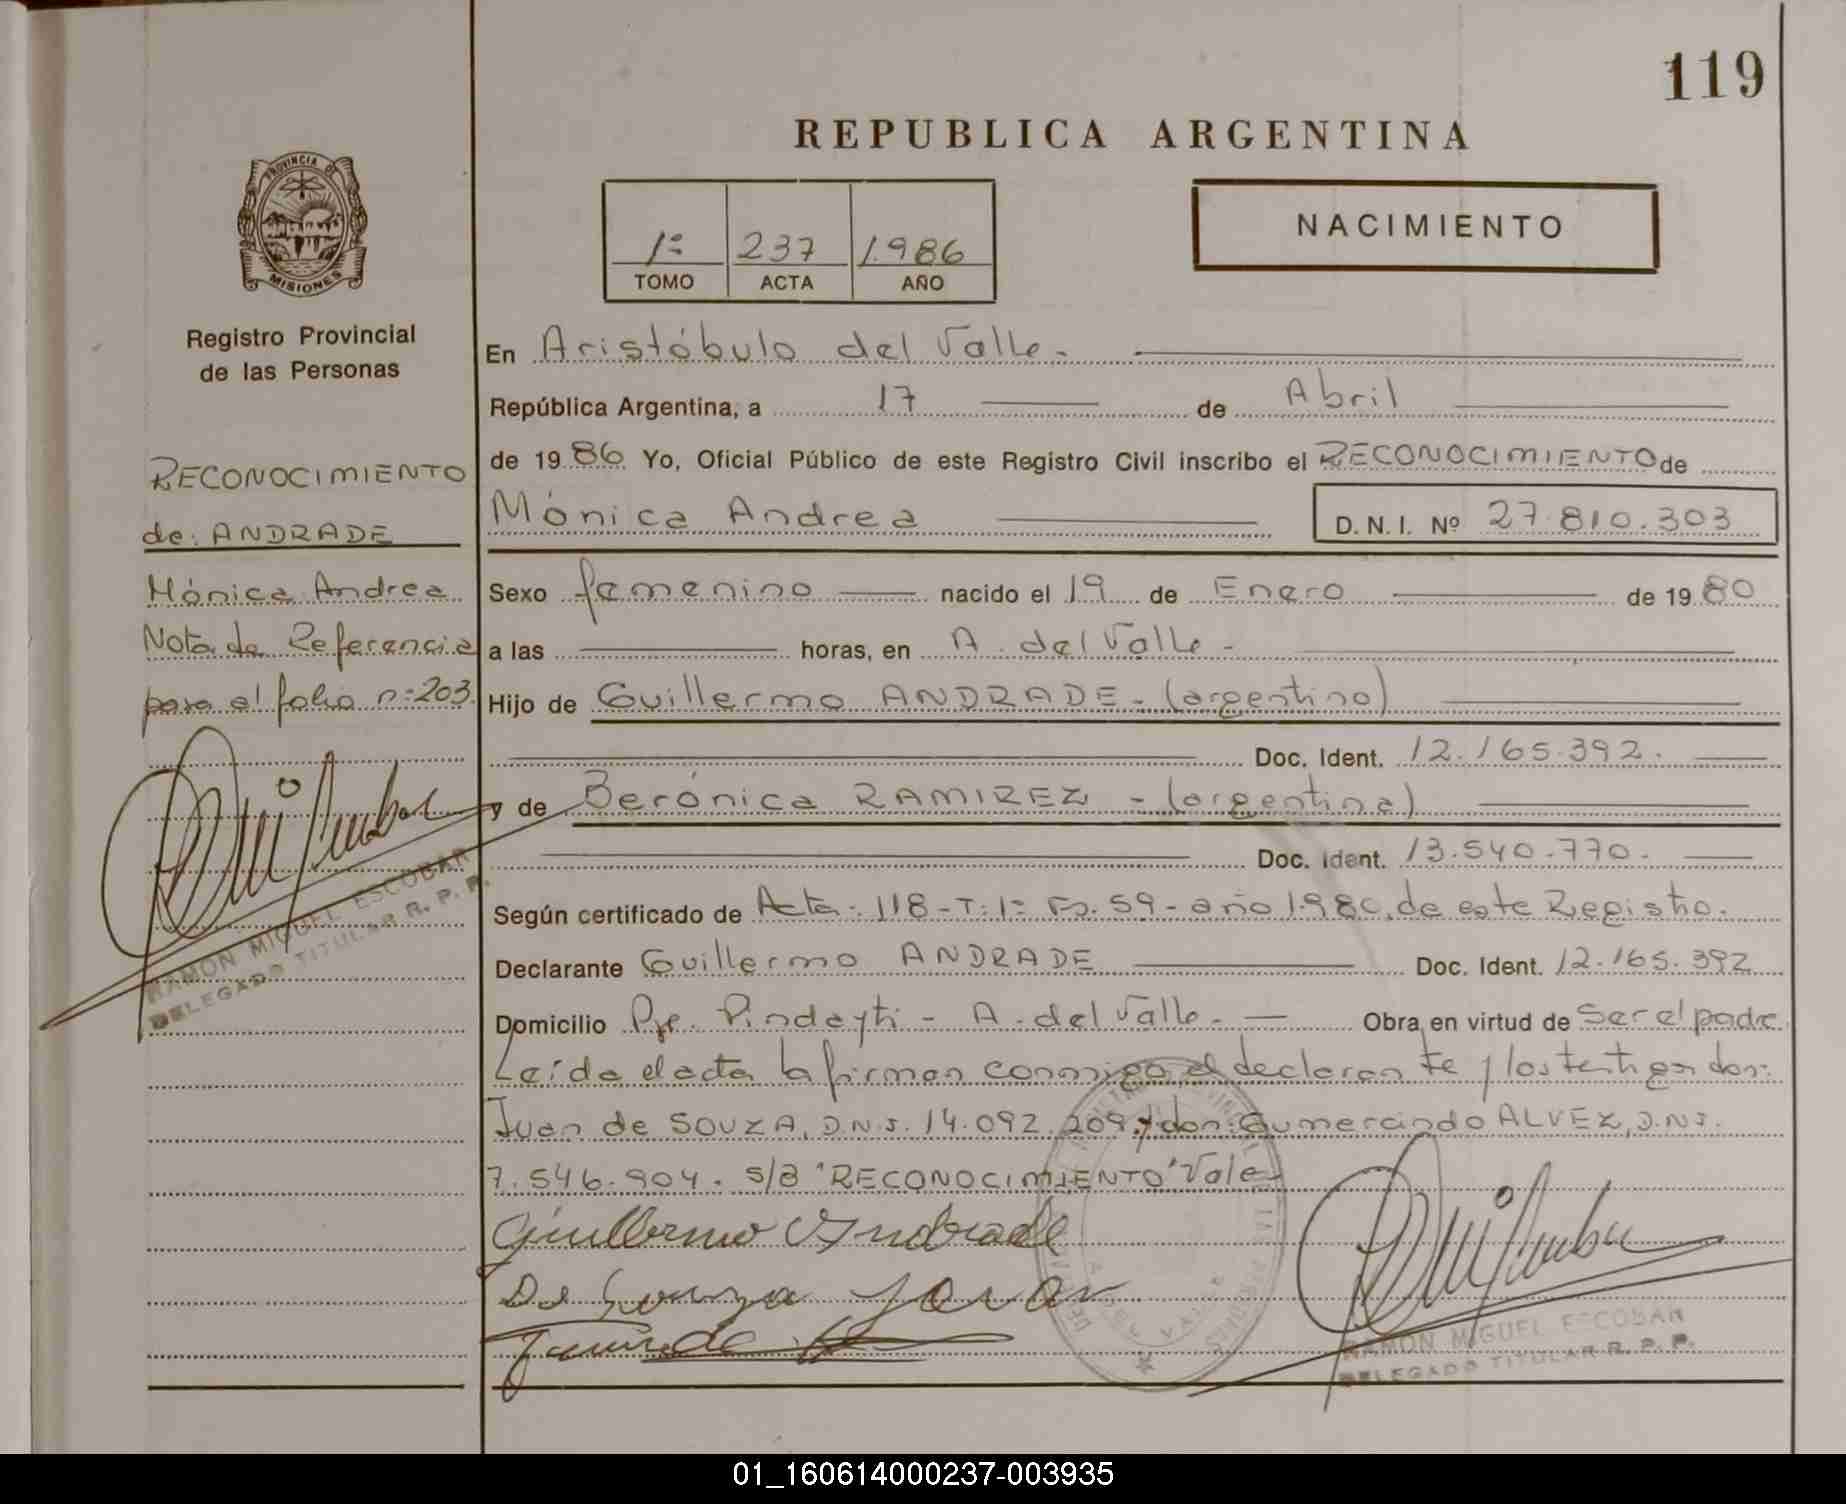 119
REPUBLICA ARGENTINA
PROVINCIA DE
MISIONES
1º 237 1.986
TOMO ACTA AÑO
NACIMIENTO
Registro Provincial
de las Personas
RECONOCIMIENTO
de: ANDRADE
Mónica Andrea
Nota de Referencia
para el folio nº 203.
RAMON MIGUEL ESCOBAR
DELEGADO TITULAR R. P. P.
En Aristóbulo del Valle.-
República Argentina, a 17 de Abril
de 1986 Yo, Oficial Público de este Registro Civil inscribo el RECONOCIMIENTO de
Mónica Andrea D. N. I. Nº 27.810.303
Sexo femenino nacido el 19 de Enero de 1980
a las horas, en A. del Valle -
Hijo de Guillermo ANDRADE - (argentino)
Doc. Ident. 12.165.392.
y de Berónica RAMIREZ - (argentina)
Doc. Ident. 13.540.770.
Según certificado de Acta: 118 - T: 1º Fo. 59 - año 1.980, de este Registro.
Declarante Guillermo ANDRADE Doc. Ident. 12.165.392
Domicilio Pje. Pindayti - A. del Valle. - Obra en virtud de ser el padre
Leída el acta la firman conmigo el declarante y los testigos don:
Juan de SOUZA, D.N.I. 14.092.209 y don: Gumercindo ALVEZ, D.N.I.
7.546.904. S/B "RECONOCIMIENTO" Vale
Guillermo Andrade
De Souza Juan
RAMON MIGUEL ESCOBAR
DELEGADO TITULAR R. P. P.
01_160614000237-003935